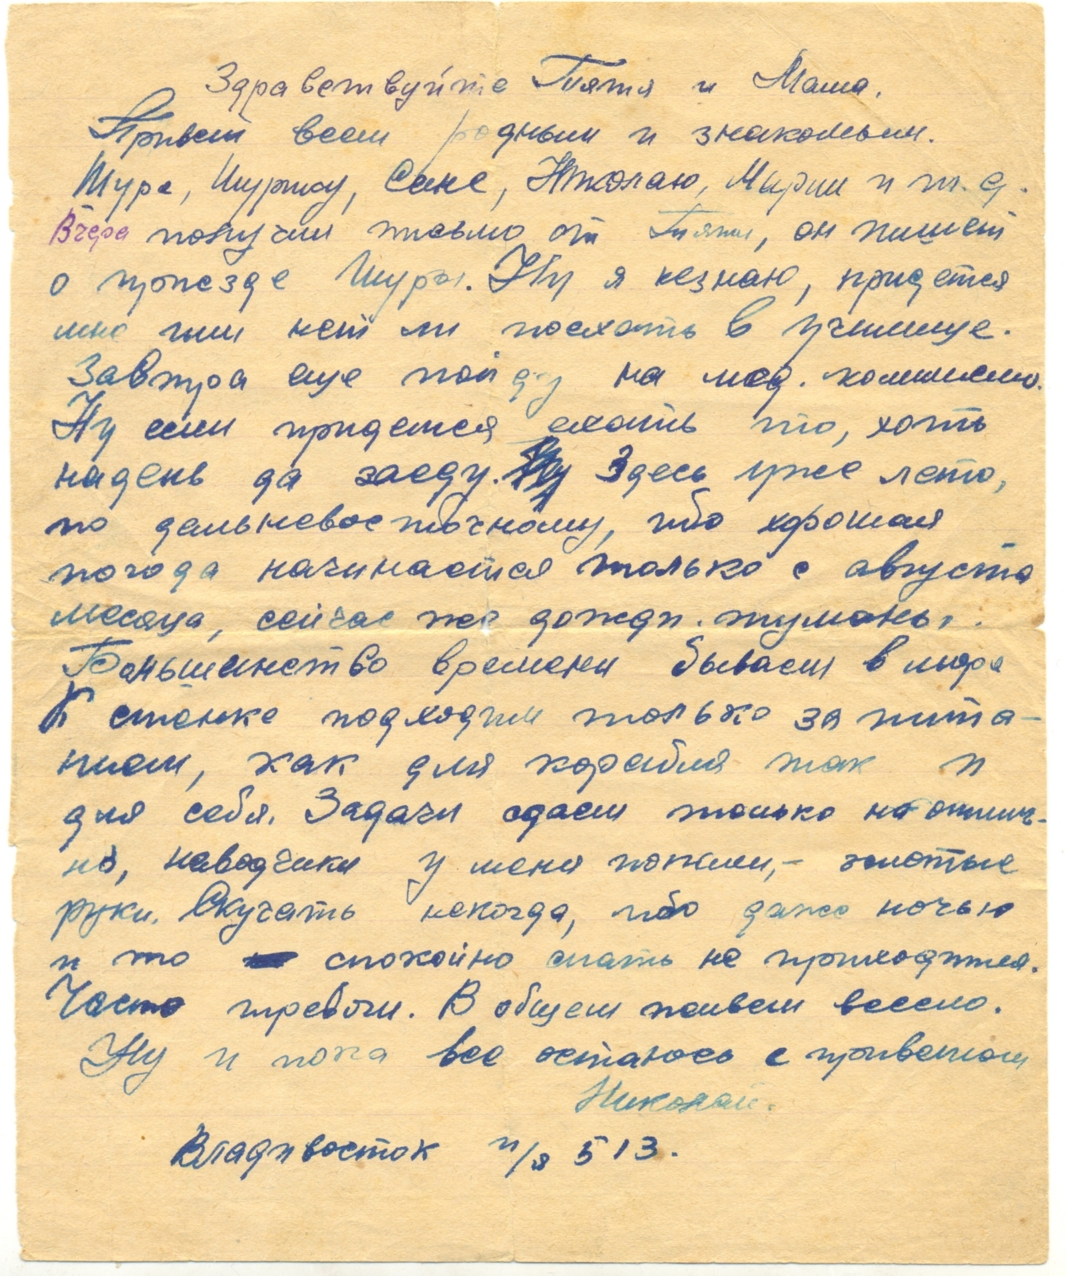 Здравствуйте Тятя и Мама.
Привет всем родным и знакомым.
Шуре, Шурику, Сане, Николаю, Марии и т.д.
Вчера получил письмо от Тяти, он пишет
о приезде Шуры. Ну я незнаю, придется
мне или нет ли поехать в училище.
Завтра еще пойду на мед. комиссию.
Ну если придется ехать то, хоть
надень да заеду. Здесь уже лето,
по дальневосточному, ибо хорошая
погода начинается только с августа
месяца, сейчас же дожди. туманы.
Большинство времени бываем в море
К стенке подходим только за пита-
нием, как для корабля так и
для себя. Задачи сдаем только на отлич-
но, наводчики у меня пожили,- золотые
руки. Скучать некогда, ибо даже ночью
и то спокойно спать не приходится.
Часто тревоги. В общем живем весело.
Ну и пока все остаюсь с приветом
Николай.
Владивосток п/я 513.